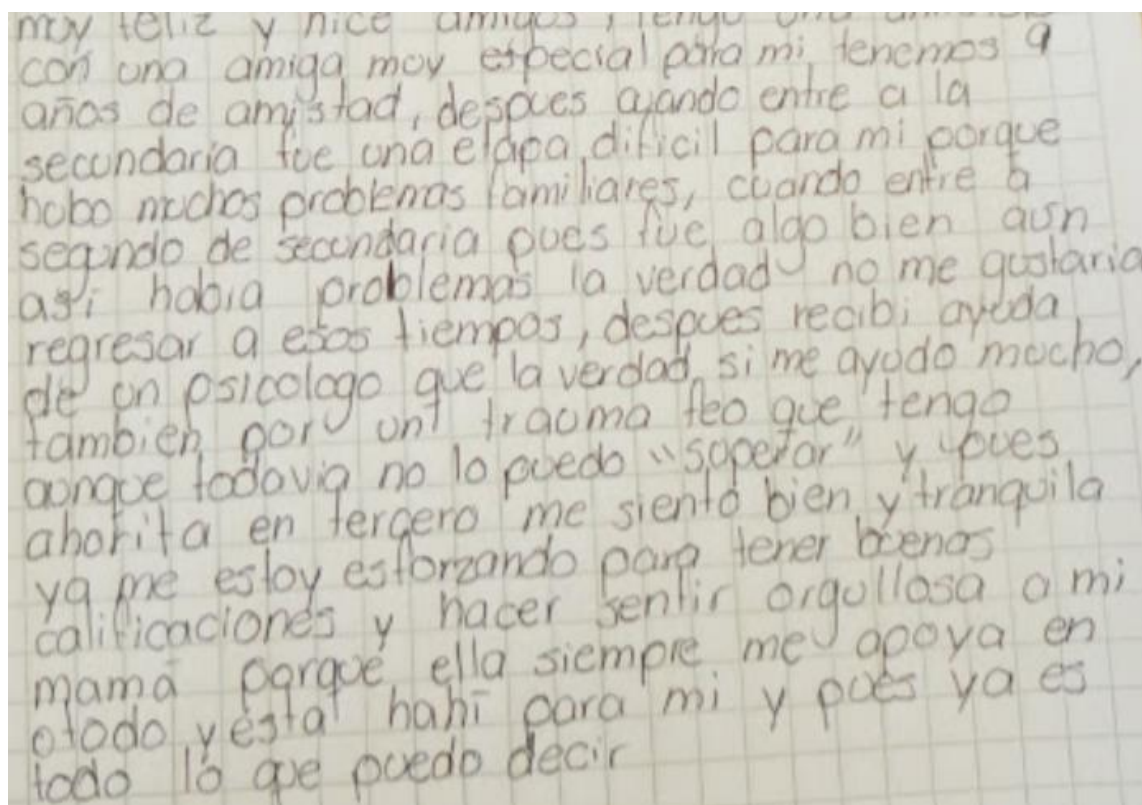 muy feliz y hice amigos, tengo una
con una amiga muy especial para mi, tenemos 9
años de amistad, despues cuando entre a la
secundaria fue una etapa dificil para mi porque
hubo muchos problemas familiares, cuando entre a
segundo de secundaria pues fue algo bien aun
asi habia problemas la verdad no me gustaria
regresar a esos tiempos, despues recibi ayuda
de un psicologo que la verdad si me ayudo mucho,
tambien por un trauma feo que tengo
aunque todavia no lo puedo "superar" y pues
ahorita en tercero me siento bien y tranquila
ya me estoy esforzando para tener buenas
calificaciones y hacer sentir orgullosa a mi
mamá porque ella siempre me apoya en
todo y esta hahi para mi y pues ya es
todo lo que puedo decir